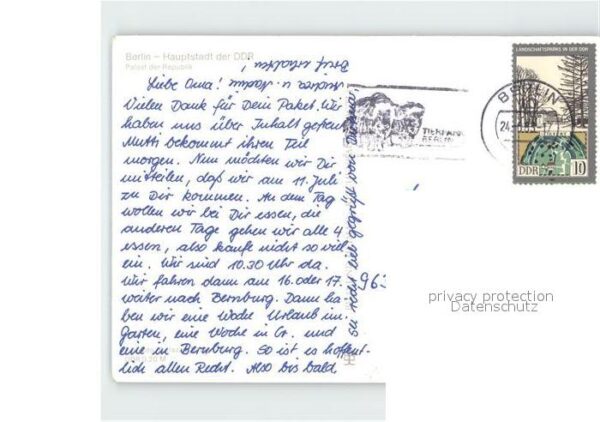 Berlin – Hauptstadt der DDR
Palast der Republik
Liebe Oma!
Vielen Dank für Dein Paket. Wir
haben uns über Inhalt gefreut.
Mutti bekommt ihren Teil
morgen. Nun möchten wir Dir
mitteilen, daß wir am 11. Juli
zu Dir kommen. An dem Tag
wollen wir bei Dir essen, die
anderen Tage gehen wir alle 4
essen, also kaufe nicht so viel
ein. Wir sind 10.30 Uhr da.
Wir fahren dann am 16. oder 17.
weiter nach Bernburg. Dann ha
ben wir eine Woche Urlaub im
Garten, eine Woche in Cr. und
eine in Bernburg. So ist es hoffent-
lich allen Recht. Also bis bald
sei recht lieb gegrüßt von
Brief erhalten!
963
TIERPARK
BERLIN
BERLIN
24.
LANDSCHAFTSPARKS IN DER DDR
DDR 10
privacy protection
Datenschutz